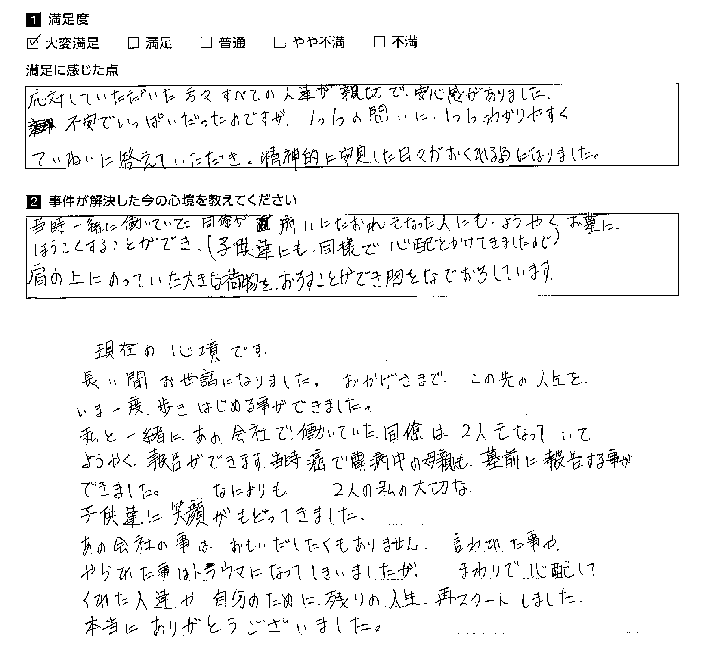 1 満足度
☑ 大変満足 □ 満足 □ 普通 □ やや不満 □ 不満
満足に感じた点
応対していただいた方々すべての人達が親切で、安心感がありました。
不安でいっぱいだったのですが、1つ1つの問いに、1つ1つわかりやすく
ていねいに答えていただき、精神的に安定した日々がおくれる様になりました。
2 事件が解決した今の心境を教えてください
当時一緒に働いていた同僚が病いにたおれ亡なった人にも、ようやくお墓に
ほうこくすることができ、(子供達にも、同様で心配をかけてきましたので)
肩の上にのっていた大きな荷物を、おろすことができ胸をなでおろしています。
現在の心境です。
長い間お世話になりました。おかげさまで、この先の人生を、
いま一度、歩きはじめる事ができました。
私と一緒にあの会社で働いていた同僚は2人亡なっていて
ようやく、報告ができます。当時癌で闘病中の母親も、墓前に報告する事が
できました。なによりも 2人の私の大切な
子供達に笑顔がもどってきました。
あの会社の事はおもいだしたくもありません。言われた事や、
やられた事はトラウマになってしまいましたが、まわりで心配して
くれた人達や自分のために、残りの人生、再スタートしました。
本当にありがとうございました。